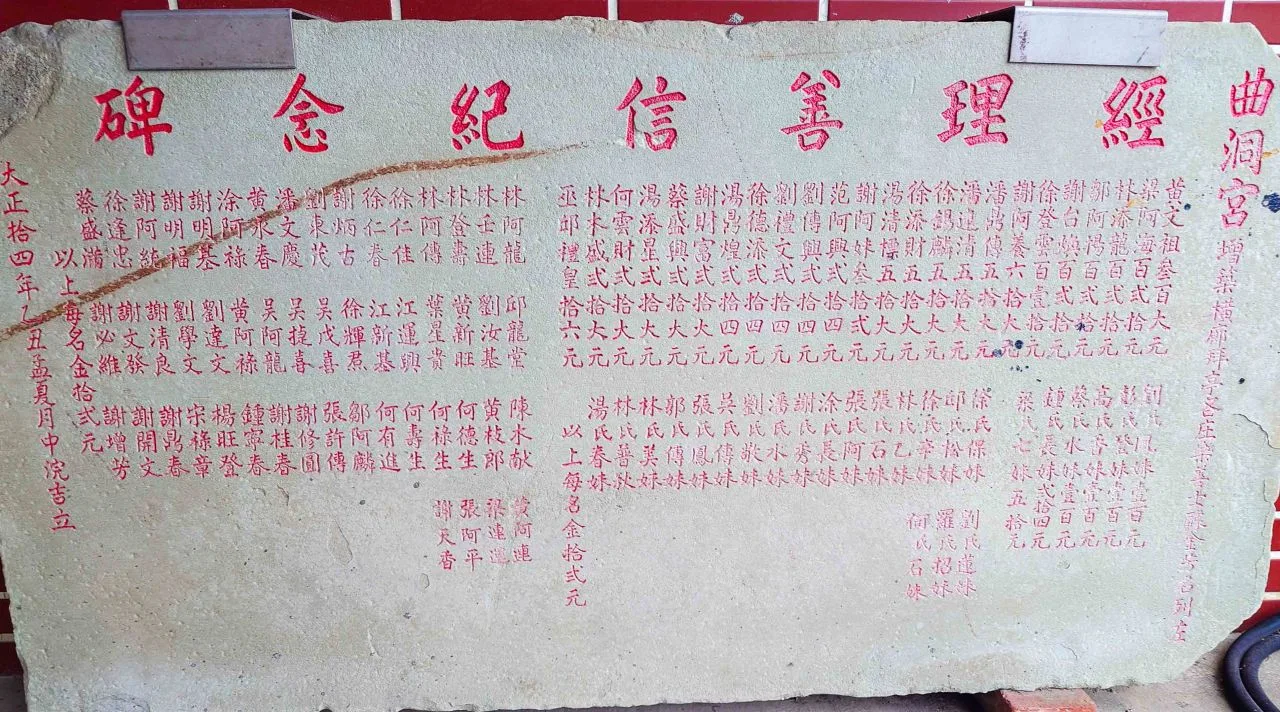 經理善信紀念碑
曲洞宮增築橫廊拜亭之庄樂善士諸金芳名列左
黃文祖叁百大元
梁阿海百弍拾元
林添龍百弍拾元
鄒阿楊百弍拾元
謝台煥百弍拾元
徐登雲百壹拾元
謝阿養六拾大元
潘鼎傳五拾大元
潘進清五拾大元
徐錫麟五拾大元
徐添財五拾大元
湯清標五拾大元
謝阿妹叁拾弍元
范阿興弍拾四元
劉傳興弍拾四元
劉禮文弍拾四元
徐德添弍拾四元
湯鼎煌弍拾四元
謝財富弍拾大元
蔡盛興弍拾大元
湯添星弍拾大元
何雲財弍拾大元
林木盛弍拾大元
巫邱禮皇拾六元
劉氏 妹壹百元
彭氏發妹壹百元
高氏香妹壹百元
蔡氏水妹壹百元
鍾氏長妹弍拾四元
梁氏七妹五拾元
徐氏保妹
邱氏松妹
徐氏亭妹
林氏乙妹
張氏石妹
張氏阿妹
涂氏長妹
謝氏秀妹
潘氏水妹
劉氏敬妹
吳氏傳妹
張氏鳳妹
郭氏傳妹
林氏英妹
林氏善妹
湯氏春妹
劉氏蓮妹
羅氏招妹
何氏石妹
以上每名金拾弍元
林阿龍
林壬連
林登壽
林阿傳
徐仁佳
徐仁春
謝炳古
劉東茂
潘文慶
黃永春
涂阿祿
謝明基
謝明福
謝阿統
徐逢忠
蔡盛滿
邱龍堂
劉汝基
黃新旺
葉星貴
江運興
江新基
徐輝君
吳茂喜
吳捷喜
吳阿龍
黃阿祿
劉達文
劉學文
謝清良
謝文發
謝必維
陳水献
黃枝郎
何德生
何祿生
何壽生
何有進
鄒阿麟
張許傳
謝修圓
謝桂春
鍾寧春
楊旺登
宋祿章
謝鼎春
謝開文
謝增芳
黃阿連
梁連進
張阿平
謝天香
以上每名金拾弍元
大正拾四年乙丑孟夏月中浣吉立